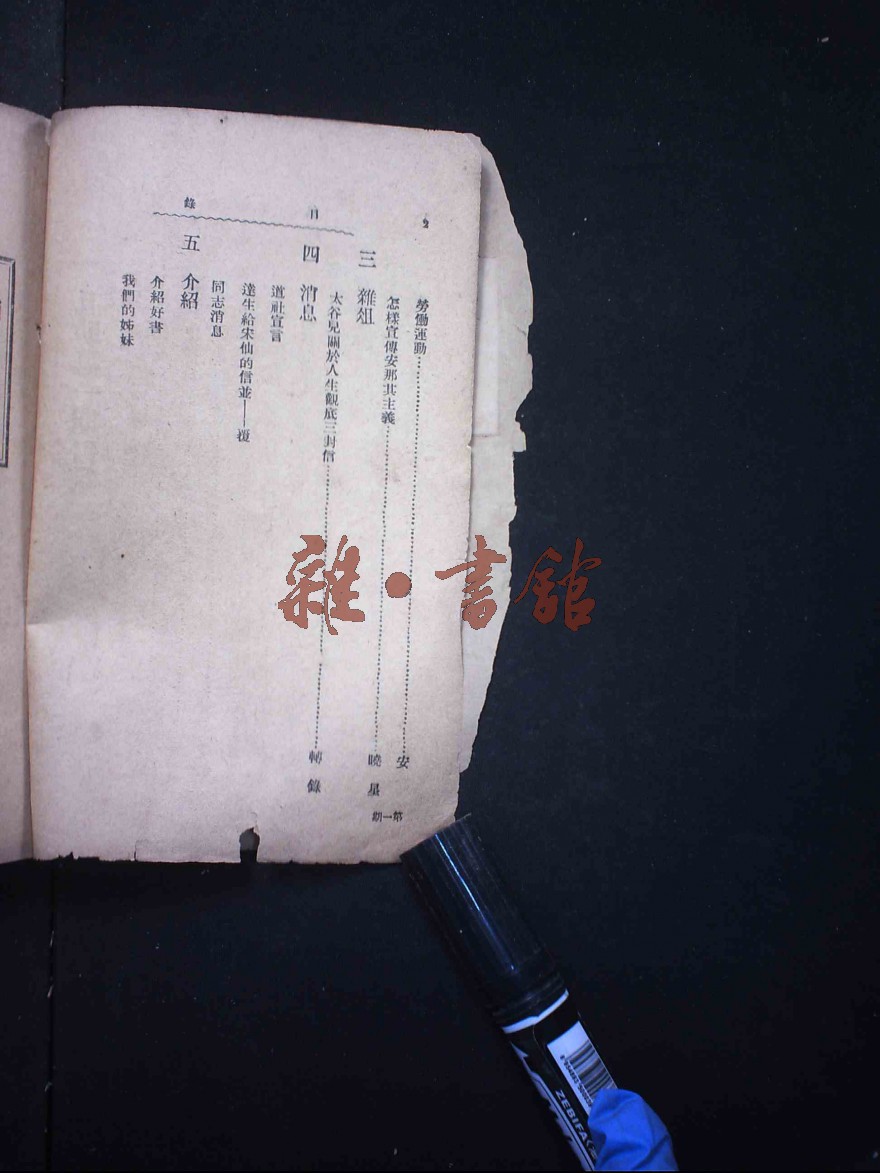 2
目錄
勞働運動……安
怎樣宣傳安那其主義……曉星
三 雜俎
太谷兒關於人生觀底三封信……轉錄
四 消息
道社宣言
達生給宋仙的信並——覆
同志消息
五 介紹
介紹好書
我們的姊妹
第一期
雜·書館
ZEBIFA